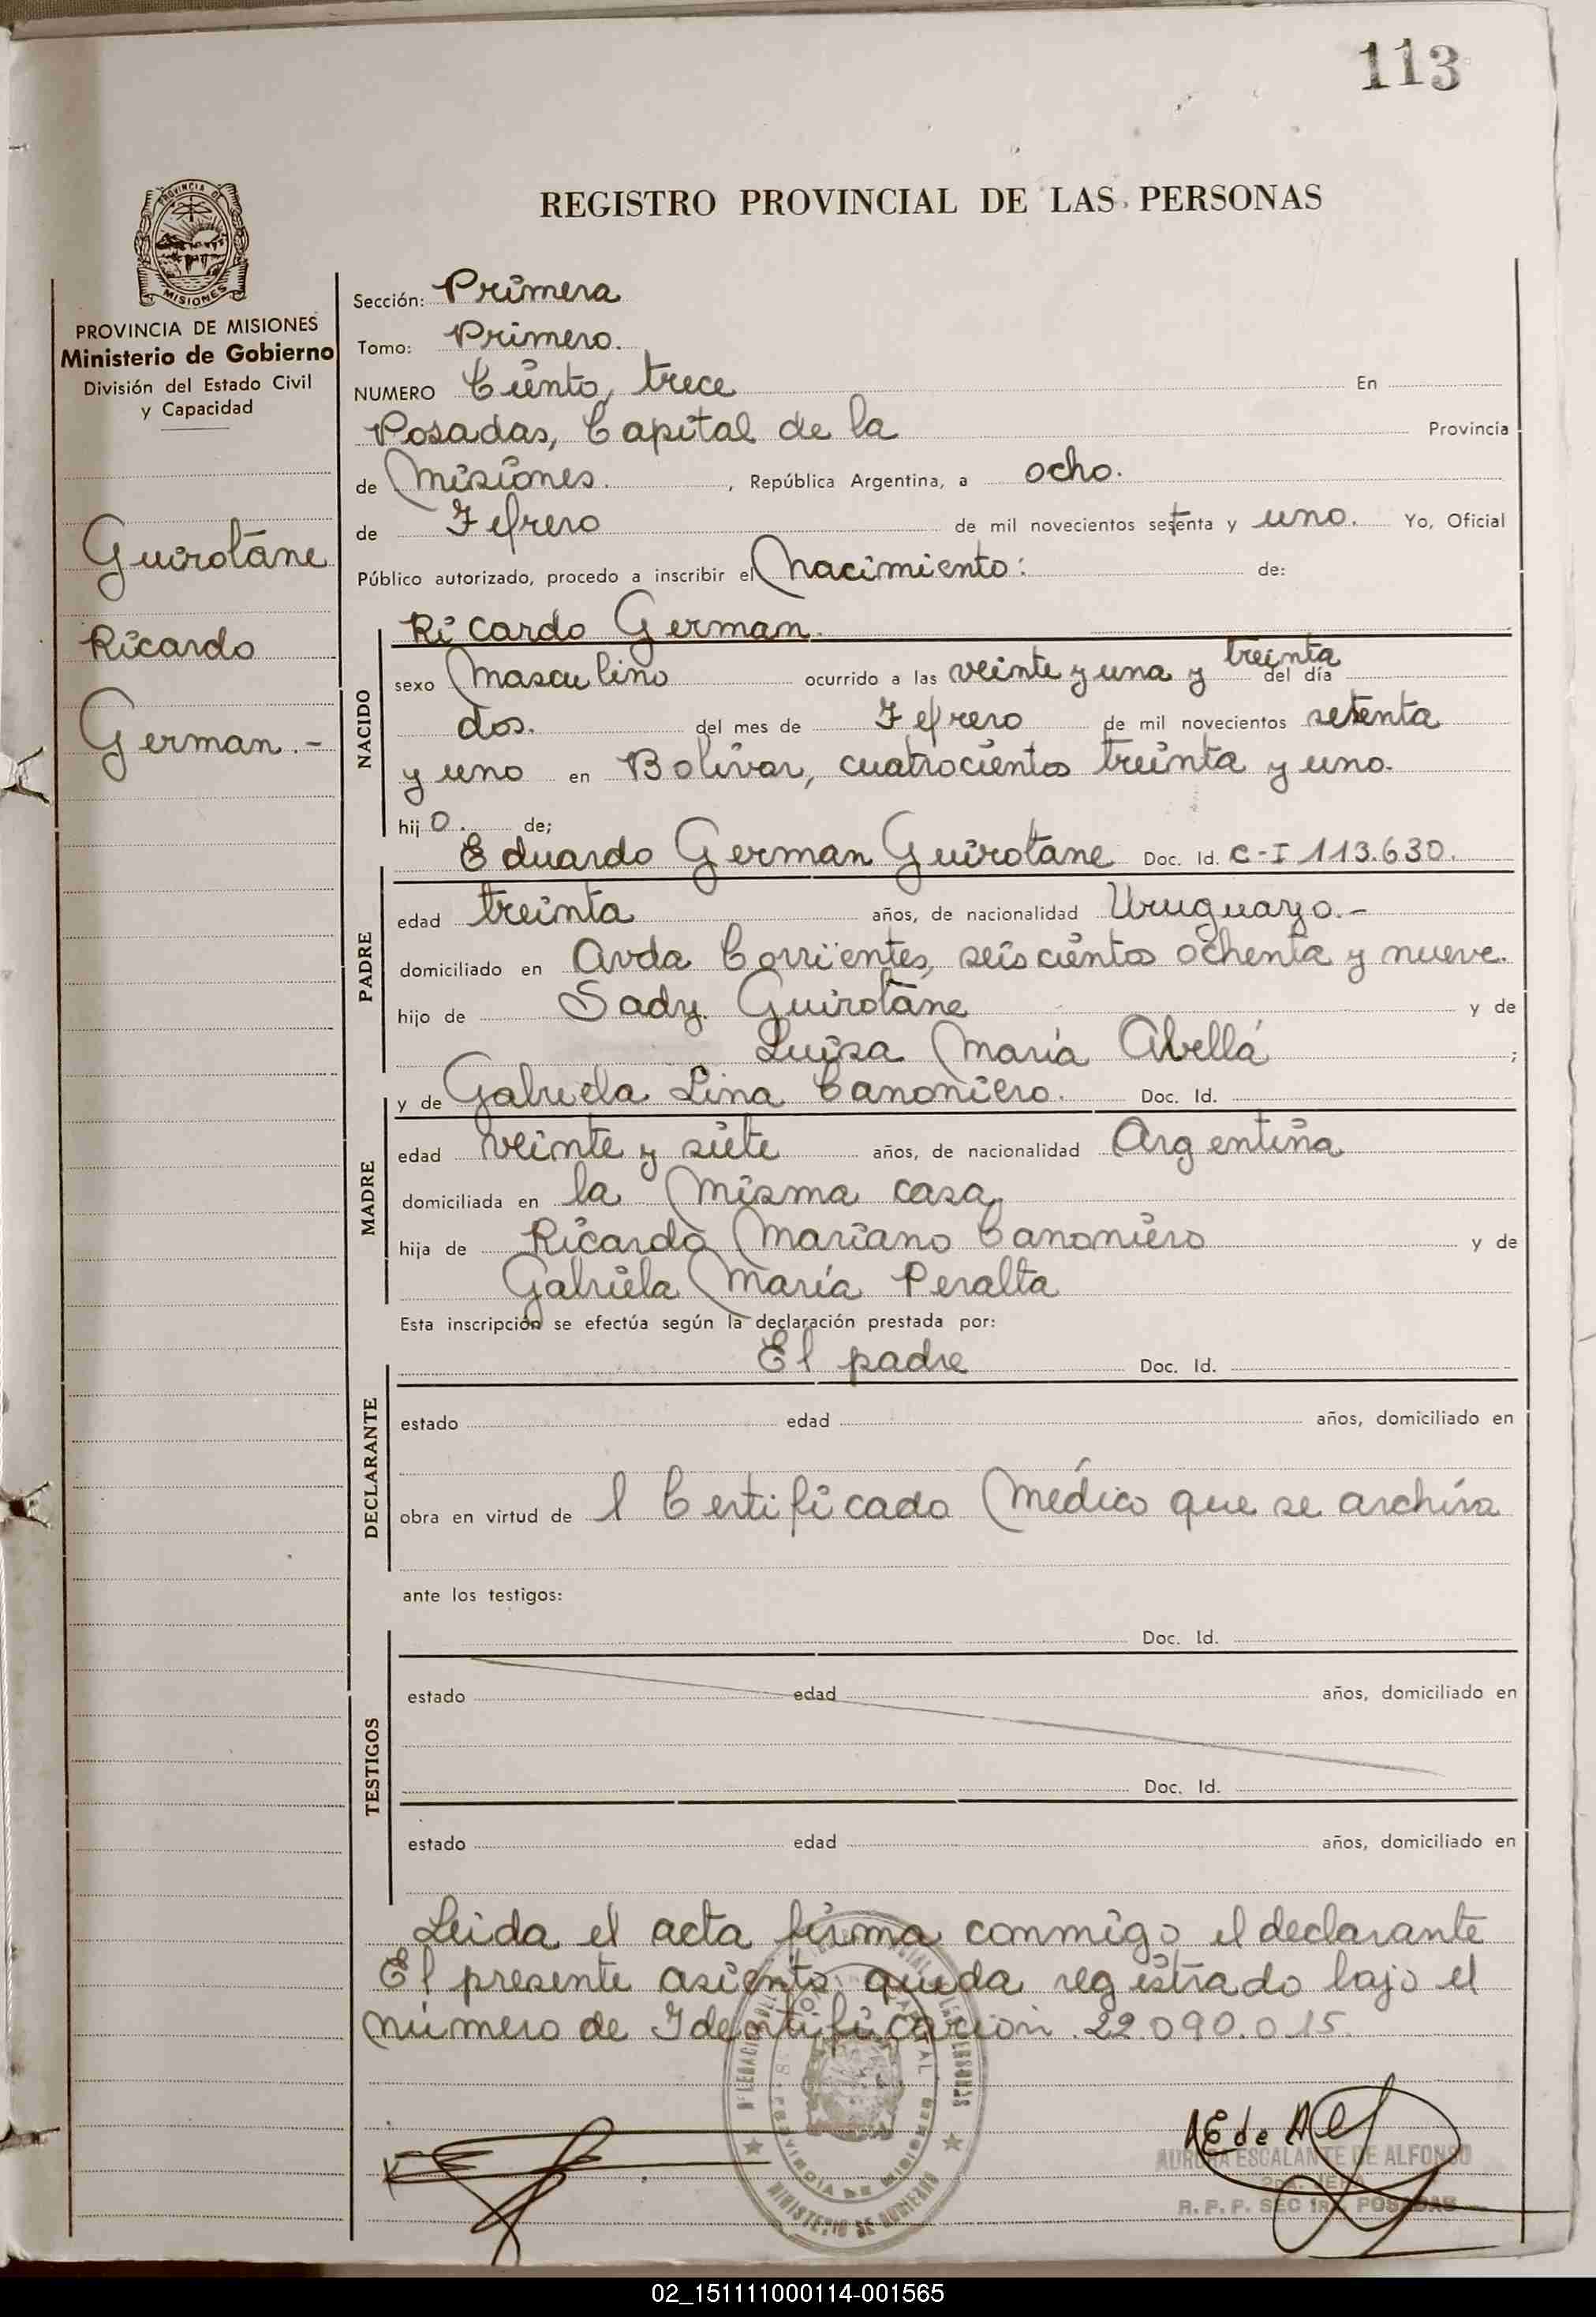 113
REGISTRO PROVINCIAL DE LAS PERSONAS
PROVINCIA DE
MISIONES
PROVINCIA DE MISIONES
Ministerio de Gobierno
División del Estado Civil
y Capacidad
Guirotane
Ricardo
German.-
Sección: Primera
Tomo: Primero.
NUMERO Ciento, trece En
Posadas, Capital de la Provincia
de Misiones. , República Argentina, a ocho.
de Febrero de mil novecientos setenta y uno. Yo, Oficial
Público autorizado, procedo a inscribir el Nacimiento: de:
NACIDO
Ricardo German.
sexo Masculino ocurrido a las veinte y una y treinta del día
dos. del mes de Febrero de mil novecientos setenta
y uno en Bolivar, cuatrocientos treinta y uno.
hijo. de;
PADRE
Eduardo German Guirotane Doc. Id. C-I 113.630.
edad treinta años, de nacionalidad Uruguayo.-
domiciliado en Avda Corrientes, seiscientos ochenta y nueve.
hijo de Sady Guirotane y de
Luisa María Abellá ;
MADRE
y de Gabriela Lina Canoniero. Doc. Id.
edad veinte y siete años, de nacionalidad Argentina
domiciliada en la misma casa,
hija de Ricardo Mariano Canoniero y de
Gabriela María Peralta
Esta inscripción se efectúa según la declaración prestada por:
DECLARANTE
El padre Doc. Id.
estado edad años, domiciliado en
obra en virtud de l Certificado Médico que se archiva
ante los testigos:
TESTIGOS
Doc. Id.
estado edad años, domiciliado en
Doc. Id.
estado edad años, domiciliado en
Leida el acta firma conmigo el declarante
El presente asiento queda registrado bajo el
número de Identificación 22.090.015.
PROVINCIA DE MISIONES
MINISTERIO DE GOBIERNO
AE de Al
AURORA ESCALANTE DE ALFONSO
R. P. P. SEC 1ra. POSADAS
02_151111000114-001565